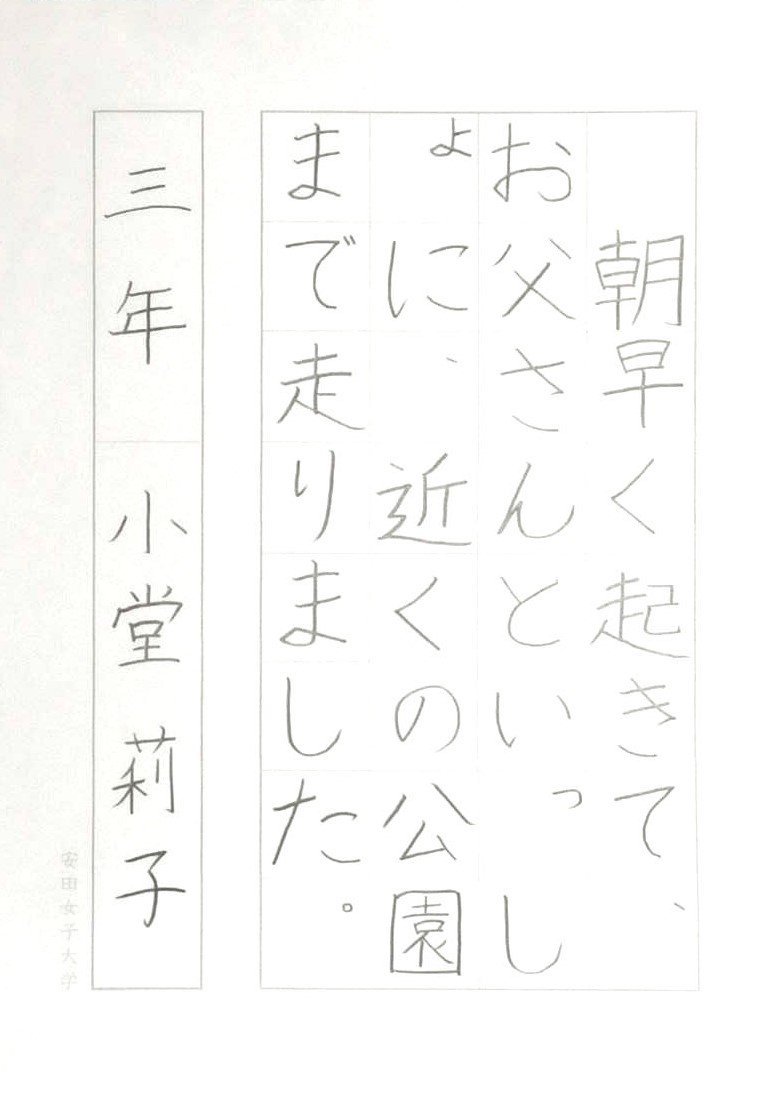 朝早く起きて、
お父さんといっし
ょに、近くの公園
まで走りました。
三年 小堂莉子
安田女子大学